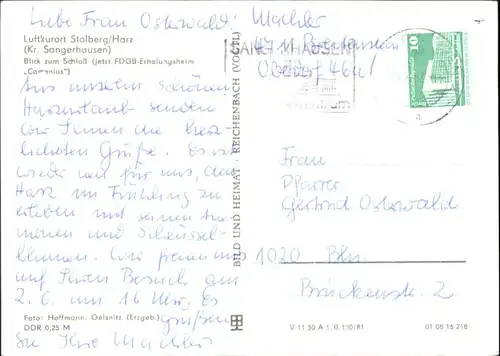 Liebe Frau Osterwald!
Luftkurort Stolberg/Harz
(Kr. Sangerhausen)
Blick zum Schloß (jetzt FDGB-Erholungsheim
„Comenius")
Aus unserem schönen
Harzurlaub senden
wir Ihnen die herz
lichsten Grüße. Es war
wieder neu für uns, den
Harz im Frühling zu
erleben mit seinen Ane
monen und Schlüssel-
blumen. Wir freuen uns
auf Ihren Besuch am
2. 6. um 16 Uhr. Es
grüßen
Sie Ihre Machler
Foto: Hoffmann, Oelsnitz (Erzgeb.)
DDR 0,25 M
BILD UND HEIMAT · REICHENBACH (VOGTL)
Machler
Obdorf 46
SANGERHAUSEN
10
Frau
Pfarrer
Gertrud Osterwald
1020 Bln.
Brückenstr. 2
V 11 50 A 1/B 1)0/81
01 08 15 218